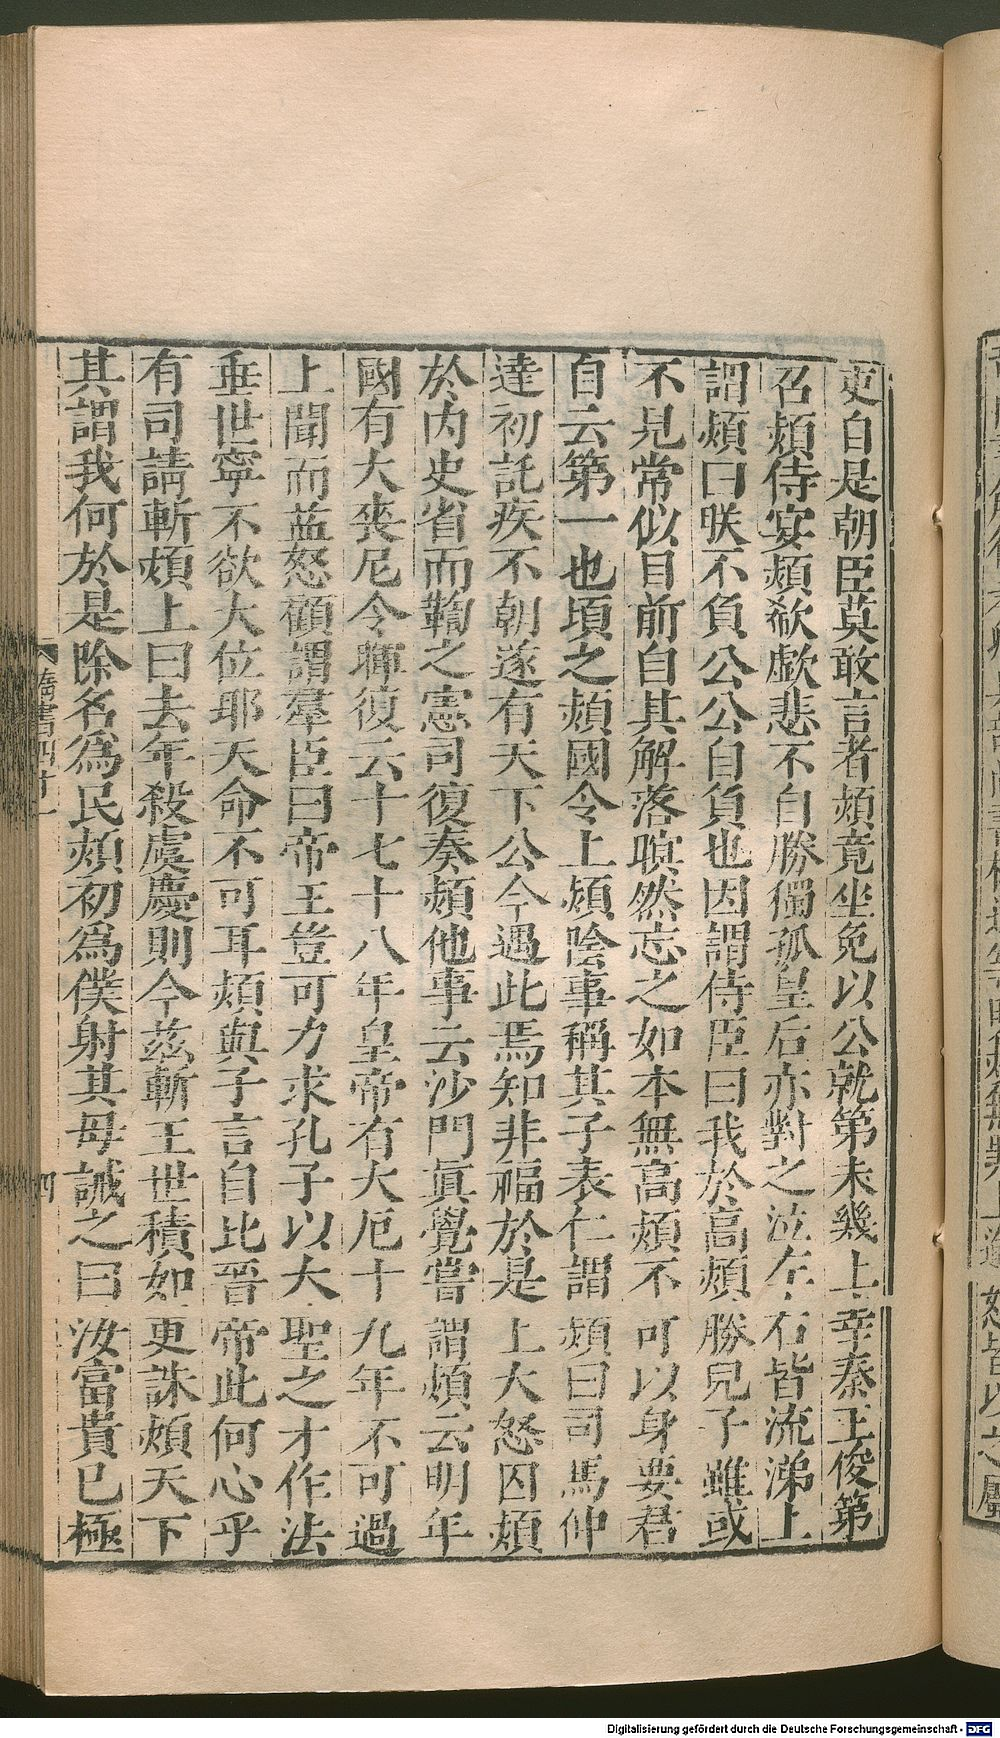 吏自是朝臣莫敢言者熲竟坐免以公就第未幾上幸秦王俊第
召熲侍宴熲欷歔悲不自勝獨孤皇后亦對之泣左右皆流涕上
謂熲曰朕不負公公自負也因謂侍臣曰我於高熲勝兒子雖或
不見常似目前自其解落瞑然忘之如本無高熲不可以身要君
自云第一也頃之熲國令上熲陰事稱其子表仁謂熲曰司馬仲
達初託疾不朝遂有天下公今遇此焉知非福於是上大怒囚熲
於內史省而鞫之憲司復奏熲他事云沙門眞覺嘗謂熲云明年
國有大喪尼令暉復云十七十八年皇帝有大厄十九年不可過
上聞而益怒顧謂羣臣曰帝王豈可力求孔子以大聖之才作法
垂世寧不欲大位耶天命不可耳熲與子言自比晉帝此何心乎
有司請斬熲上曰去年殺虞慶則今茲斬王世積如更誅熲天下
其謂我何於是除名爲民熲初爲僕射其母誡之曰汝富貴已極
隋書四十一
四
Digitalisierung gefördert durch die Deutsche Forschungsgemeinschaft - DFG